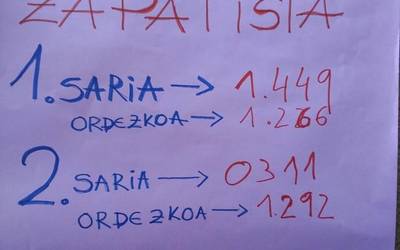 ZAPATISTA
1. SARIA → 1.449
ORDEZKOA → 1.266
2. SARIA → 0311
ORDEZKOA → 1.292